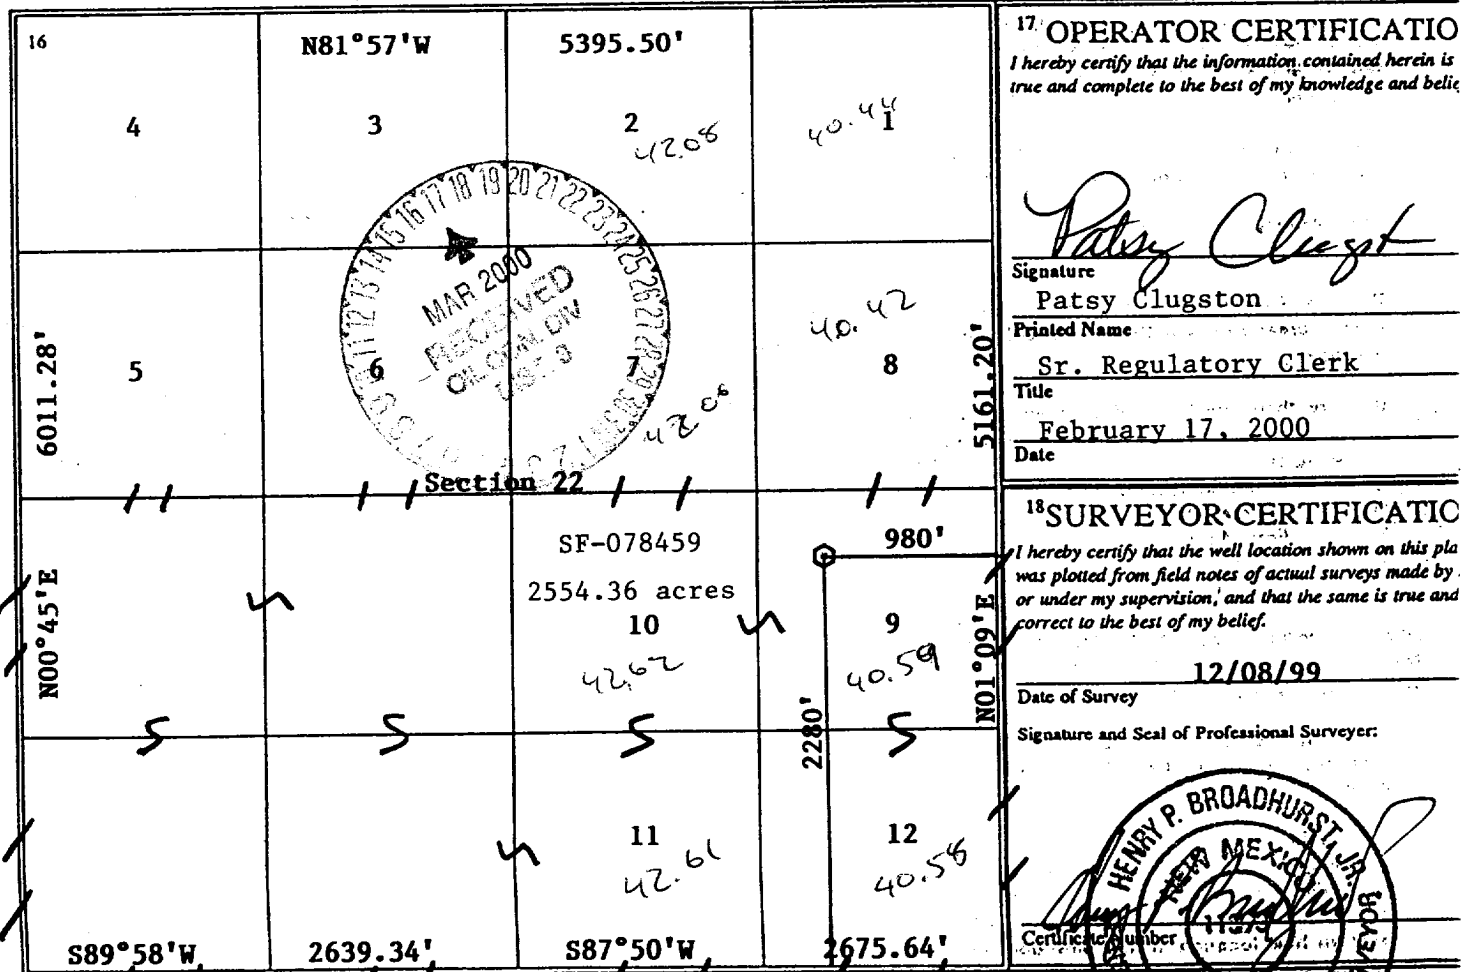 16
N81°57'W 5395.50'
4 3 2 1
42.08
40.44
12 13 14 15 16 17 18 19 20 21 22 23 24 25 26 27 28 29 30
MAR 2000
RECEIVED
OIL CON. DIV
DIST. 3
6011.28'
5 6 7 8
40.42
42.06
5161.20'
Section 22
SF-078459
2554.36 acres
980'
N00°45'E
10 9
42.62
40.59
N01°09'E
2280'
11 12
42.61
40.58
S89°58'W 2639.34' S87°50'W 2675.64'
17 OPERATOR CERTIFICATIO
I hereby certify that the information contained herein is
true and complete to the best of my knowledge and belie
Patsy Clugston
Signature
Patsy Clugston
Printed Name
Sr. Regulatory Clerk
Title
February 17, 2000
Date
18 SURVEYOR CERTIFICATIO
I hereby certify that the well location shown on this pla
was plotted from field notes of actual surveys made by
or under my supervision, and that the same is true and
correct to the best of my belief.
12/08/99
Date of Survey
Signature and Seal of Professional Surveyer:
HENRY P. BROADHURST, JR.
NEW MEXICO
Certificate Number